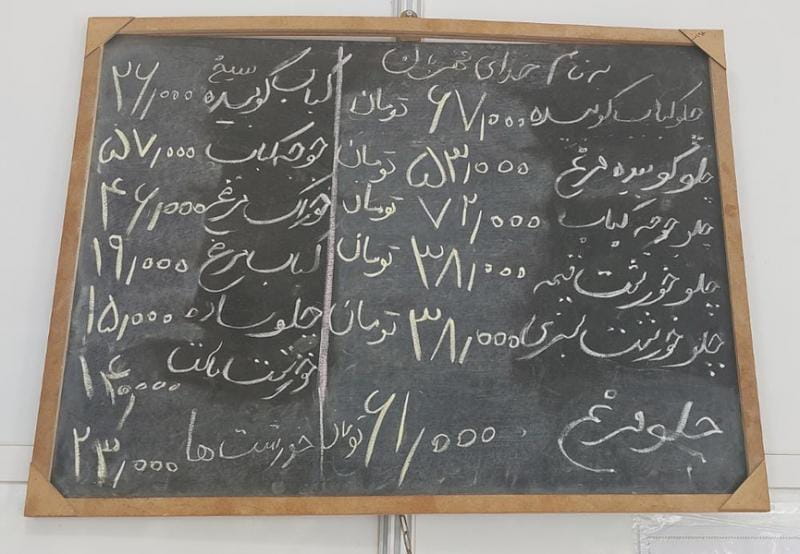 به نام خدای مهربان
چلو کباب کوبیده ۶۷/۰۰۰ تومان
چلو کوبیده مرغ ۵۳/۰۰۰ تومان
چلو جوجه کباب ۷۲/۰۰۰ تومان
چلو خورشت قیمه ۳۸/۰۰۰ تومان
چلو خورشت سبزی ۳۸/۰۰۰ تومان
چلو مرغ ۶۱/۰۰۰ تومان
کباب کوبیده سیخ ۲۶/۰۰۰
جوجه کباب ۵۷/۰۰۰
خوراک مرغ ۴۶/۰۰۰
کباب مرغ ۱۹/۰۰۰
چلو ساده ۱۵/۰۰۰
خورشت ماست
خورشت ها ۲۳/۰۰۰